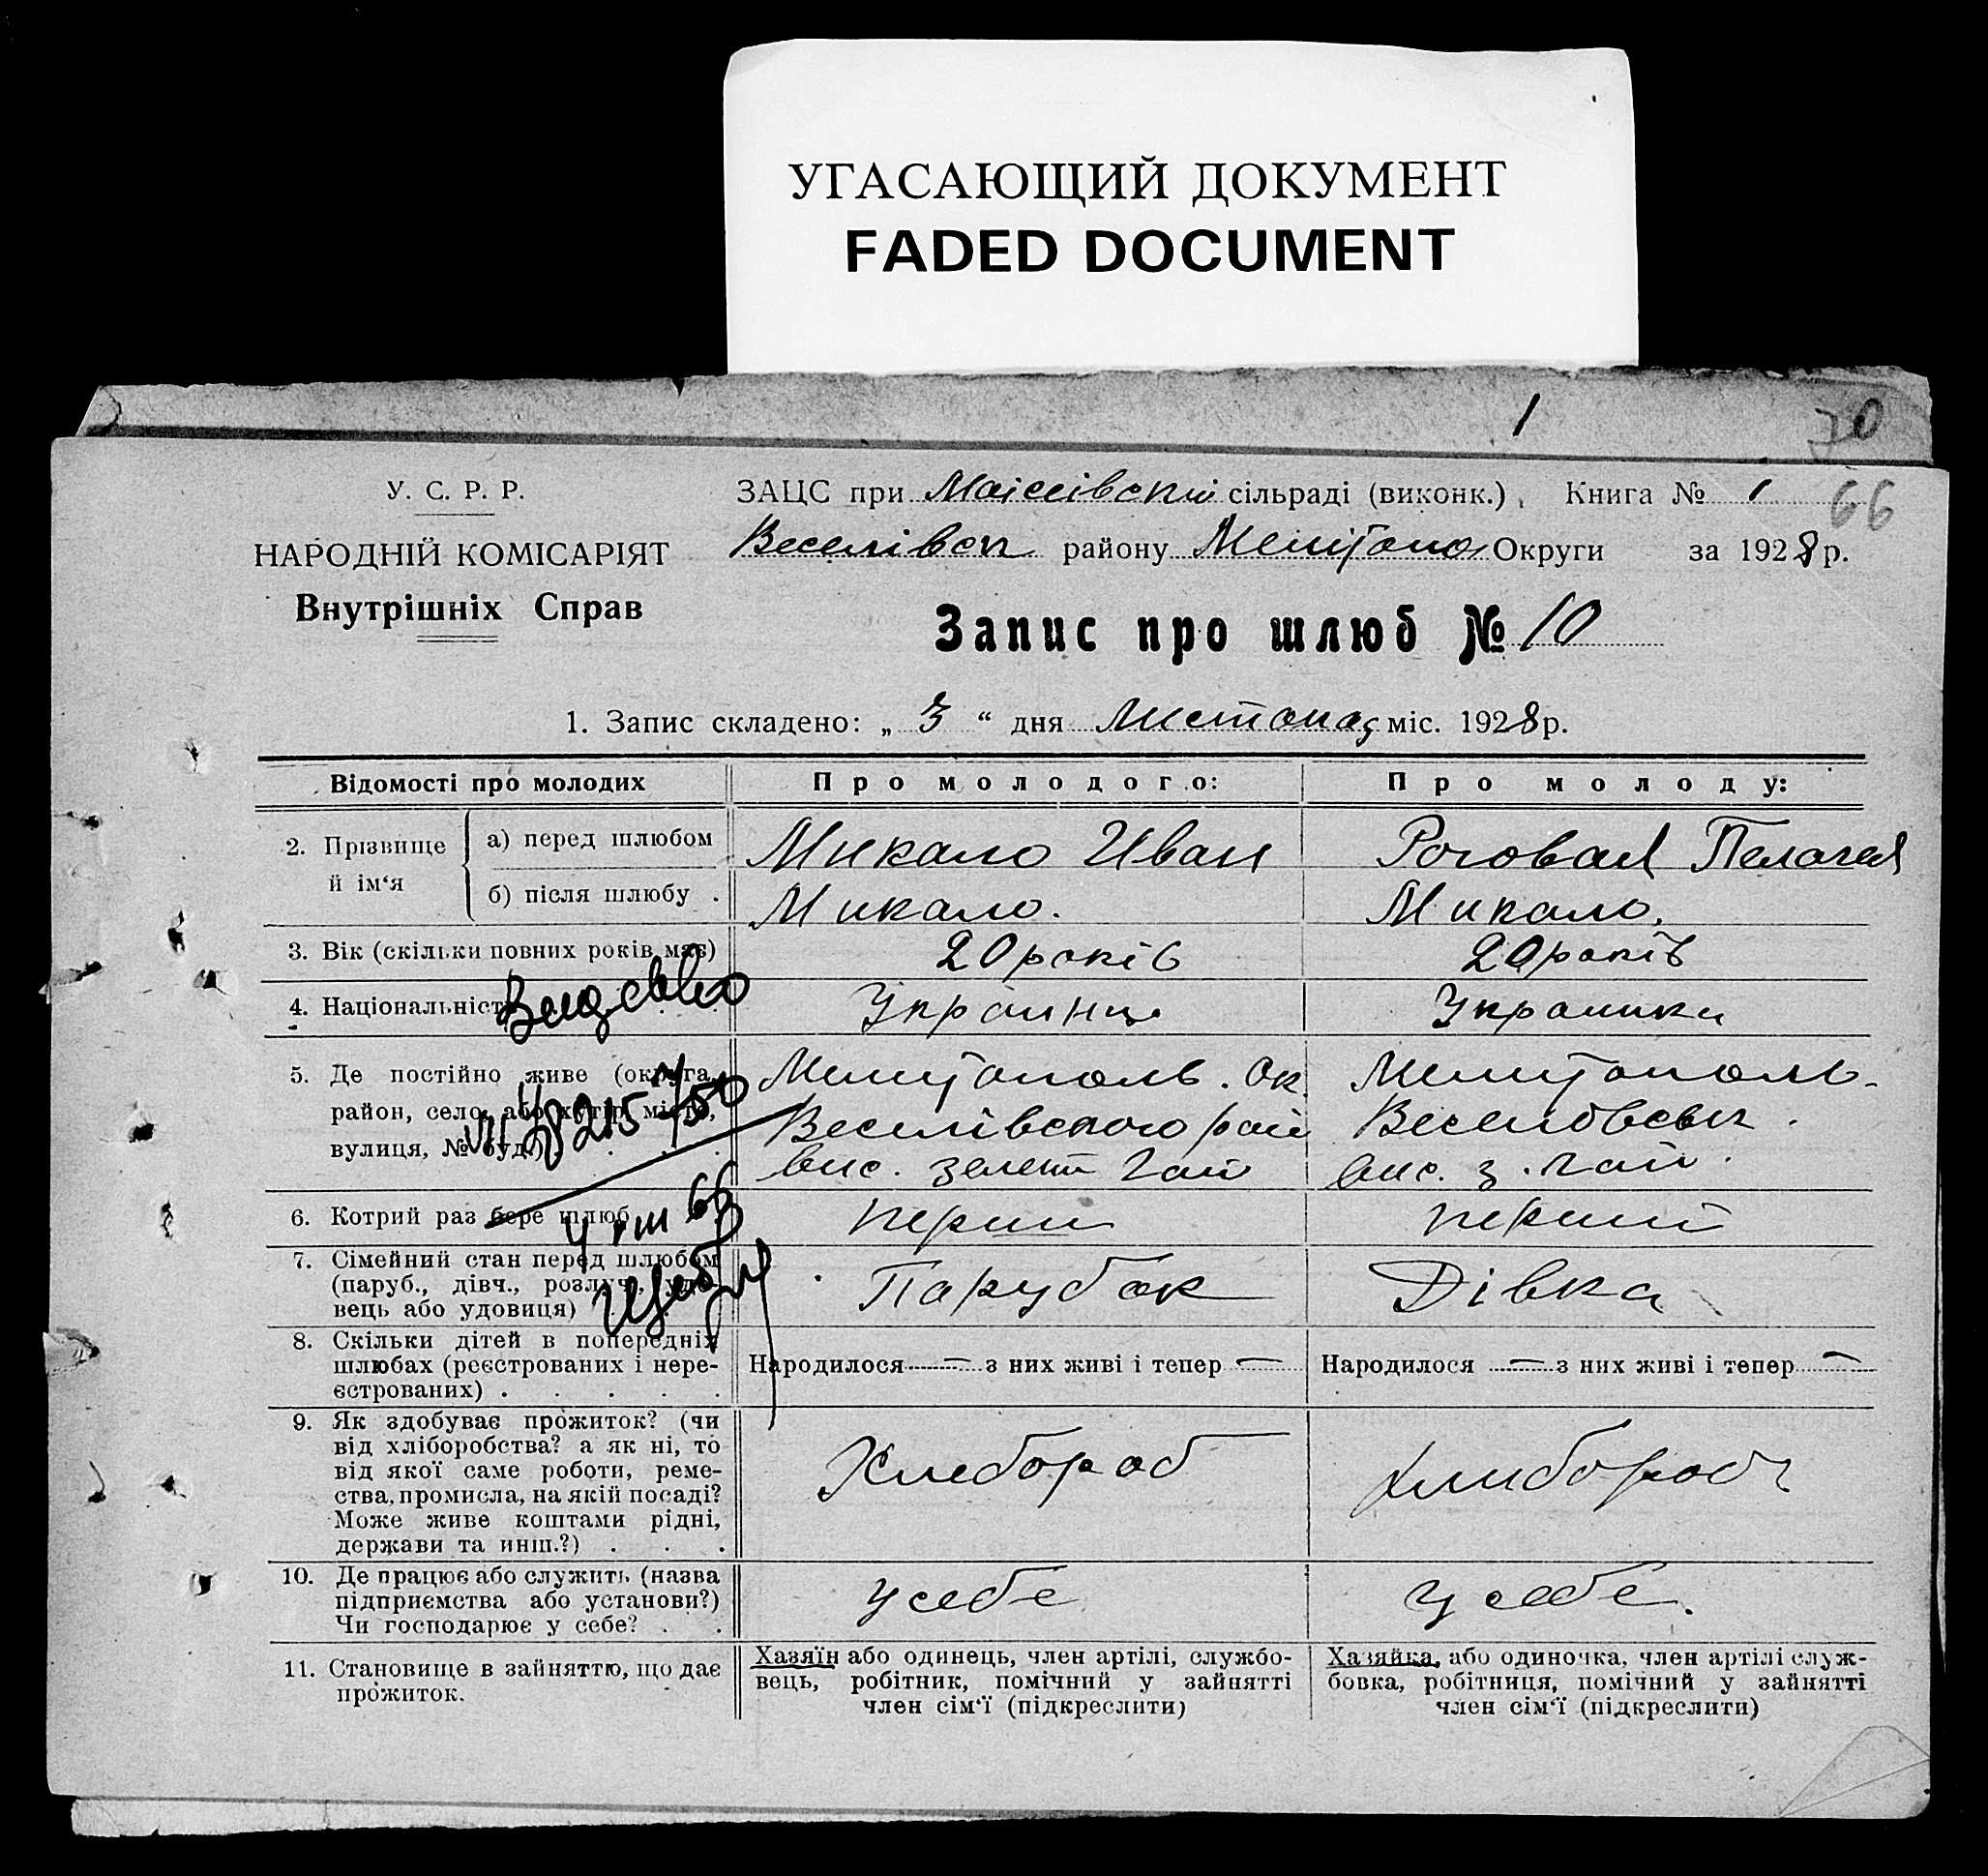 УГАСАЮЩИЙ ДОКУМЕНТ
FADED DOCUMENT
1
70
У. С. Р. Р.
НАРОДНІЙ КОМІСАРІЯТ
Внутрішніх Справ
ЗАЦС при сільраді (виконк.) Книга № 1
66
Веселівськ району Меліто Округи за 1928 р.
Запис про шлюб № 10
1. Запис складено: „ 3 “ дня Листопад міс. 1928 р.
Відомості про молодих
Про молодого:
Про молоду:
2. Прізвище й ім‘я
а) перед шлюбом
Микало Иван
Роговая Пелагея
б) після шлюбу .
Микало.
Микало.
3. Вік (скільки повних років має)
20 років
20 років
4. Національність
Українць
Українка
5. Де постійно живе (округа,
район, село, або хутір, місто,
вулиця, № буд.)
Мелітополь. Ок.
Веселівского рай
вис. зелений Гай
Мелітополь-
Веселовськ.
вис. з. Гай.
6. Котрий раз бере шлюб
перший
перший
7. Сімейний стан перед шлюбом
(паруб., дівч., розлуч., удо-
вець або удовиця)
Парубок
Дівка
8. Скільки дітей в попередніх
шлюбах (реєстрованих і нере-
єстрованих) .
Народилося — з них живі і тепер —
Народилося — з них живі і тепер —
9. Як здобуває прожиток? (чи
від хліборобства? а як ні, то
від якої саме роботи, реме-
ства, промисла, на якій посаді?
Може живе коштами рідні,
держави та инш.?) .
Хлебороб
хлибороб
10. Де працює або служить (назва
підприємства або установи?)
Чи господарює у себе? .
у себе
у себе.
11. Становище в зайняттю, що дає
прожиток.
Хазяїн або одинець, член артілі, службо-
вець, робітник, помічний у зайнятті
член сім‘ї (підкреслити)
Хазяйка, або одиночка, член артілі служ-
бовка, робітниця, помічний у зайнятті
член сім‘ї (підкреслити)